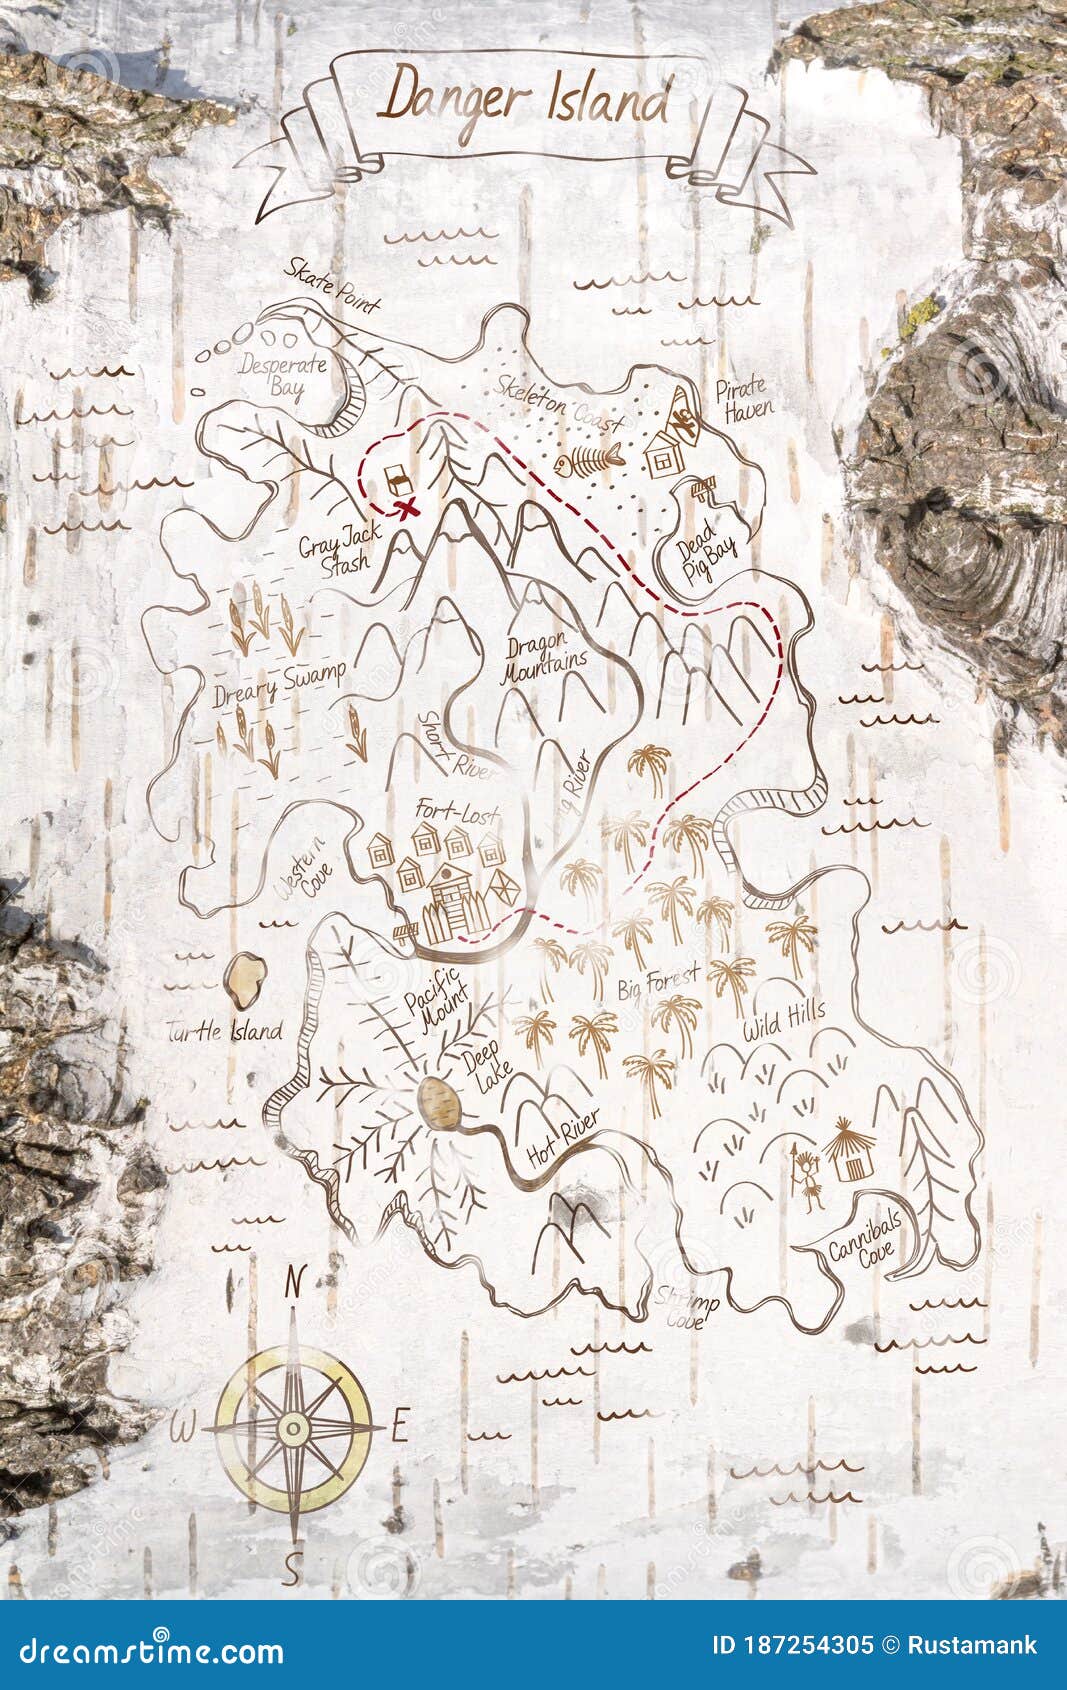 Danger Island
Skate Point
Desperate
Bay
Skeleton Coast
Pirate
Haven
Gray Jack
Stash
Dead
Pig Bay
Dragon
Mountains
Dreary Swamp
Short River
Big River
Fort-Lost
Western
Cove
Pacific
Mount
Big Forest
Turtle Island
Wild Hills
Deep
Lake
Hot River
Cannibals
Cove
Shrimp
Cove
N
W
E
S
dreamstime.com
ID 187254305 © Rustamank